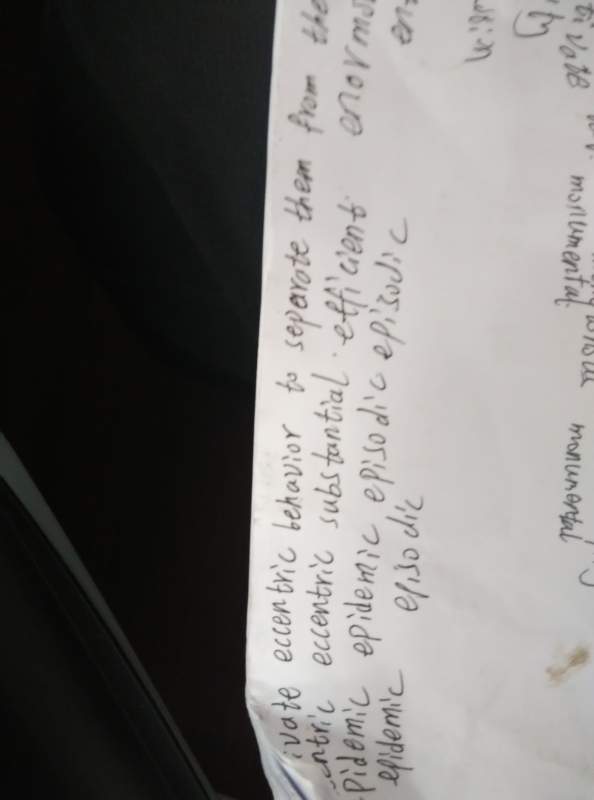 ivate eccentric behavior to separate them from the
entric eccentric substantial. efficient enormous
epidemic epidemic episodic episodic
epidemic episodic
monumental
monumental